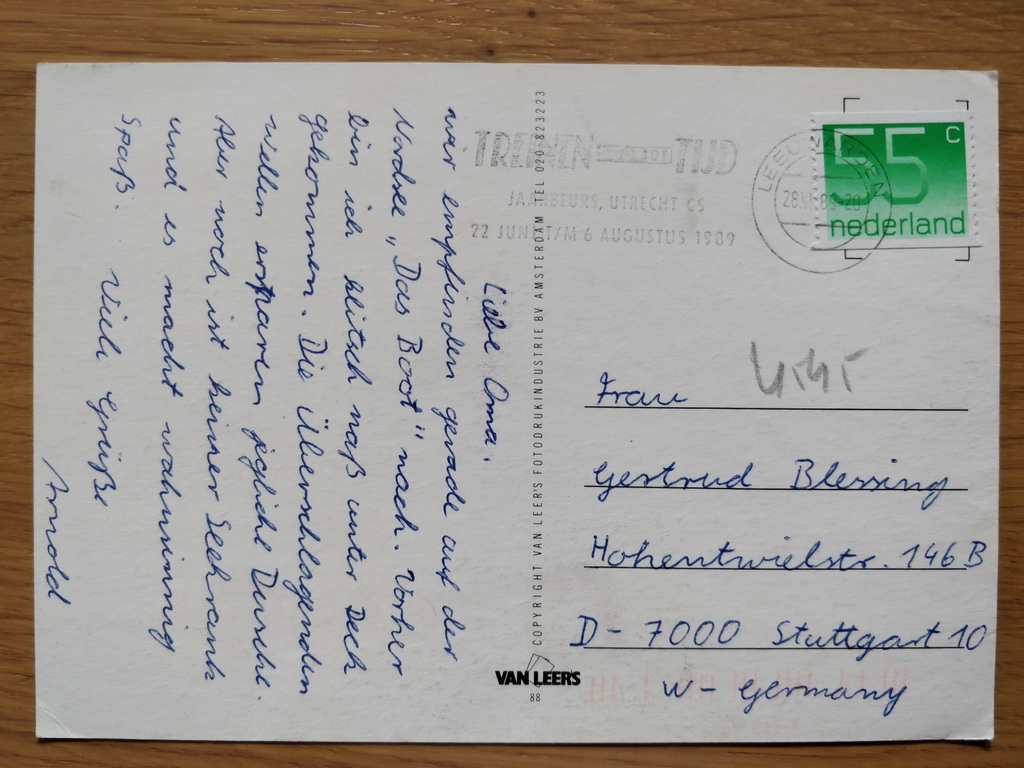 Liebe Oma.
wir empfinden gerade auf der
Nordsee „Das Boot" nach. Vorher
bin ich klitsch naß unter Deck
gekommen. Die Überschlagenden
wellen ersparen jegliche Dusche.
Aber noch ist keiner Seekrank
und es macht wahnsinnig
Spaß.
Viele Grüße
Arnold
TREINEN DOOR DE TIJD
JAARBEURS, UTRECHT CS
22 JUNI T/M 6 AUGUSTUS 1989
LEEUWARDEN
55 c
nederland
COPYRIGHT VAN LEER'S FOTODRUKINDUSTRIE BV AMSTERDAM TEL 020-823223
Frau
Gertrud Blessing
Hohentwielstr. 146 B
D- 7000 Stuttgart 10
W- Germany
VAN LEERS
88